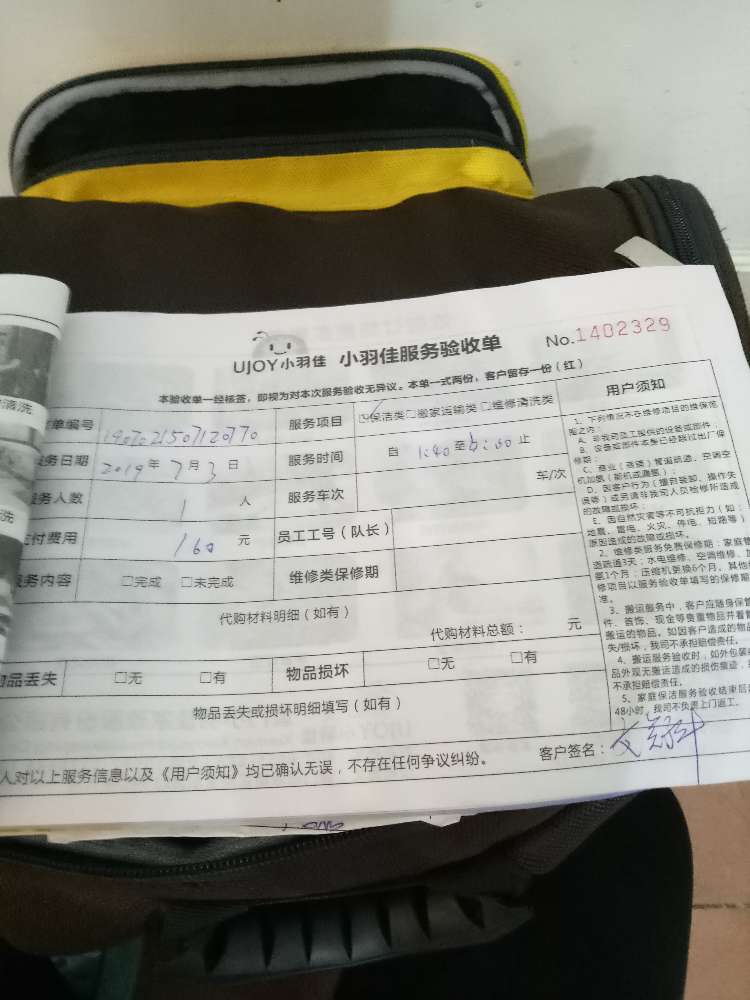 UJOY小羽佳 小羽佳服务验收单 No.1402329
本验收单一经核签，即视为对本次服务验收无异议。本单一式两份，客户留存一份（红）
单编号 1907021507120770 服务项目 ☑保洁类 □搬家运输类 □维修清洗类
务日期 2019年7月3日 服务时间 自 1:40 至 6:00 止
务人数 1 人 服务车次 车/次
付费用 160 元 员工工号（队长）
务内容 □完成 □未完成 维修类保修期
代购材料明细（如有）
代购材料总额： 元
品丢失 □无 □有 物品损坏 □无 □有
物品丢失或损坏明细填写（如有）
人对以上服务信息以及《用户须知》均已确认无误，不存在任何争议纠纷。
客户签名：
用户须知
1、下列情况不在维修项目的维保范
围之内：
A、非我司员工提供的设备或部件；
B、设备或部件本身已经超过出厂保
修期；
C、商业（商铺）管道疏通、空调空
机加氨（
D、因客户行为（擅自装卸、操作失
误等）或另请非我司人员检修所造成
的故障或损坏；
E、因自然灾害等不可抗拒力（如：
地震、雷电、火灾、停电、短路等）
原因造成的故障或损坏。
2、维修类服务免费保修期：家庭管
道疏通3天；水电维修、空调维修、加
氨1个月；压缩机更换6个月。其他维
修项目以服务验收单填写的保修期
准。
3、搬运服务中，客户应随身保管
件、首饰、现金等贵重物品并看管
搬运的物品。如因客户造成的物品
失/损坏，我司不承担赔偿责任。
4、搬运服务验收时，如外包装
品外观无搬运造成的损伤痕迹，
不承担赔偿责任。
5、家庭保洁服务验收结束后
48小时，我司不负责上门返工。
清洗
洗